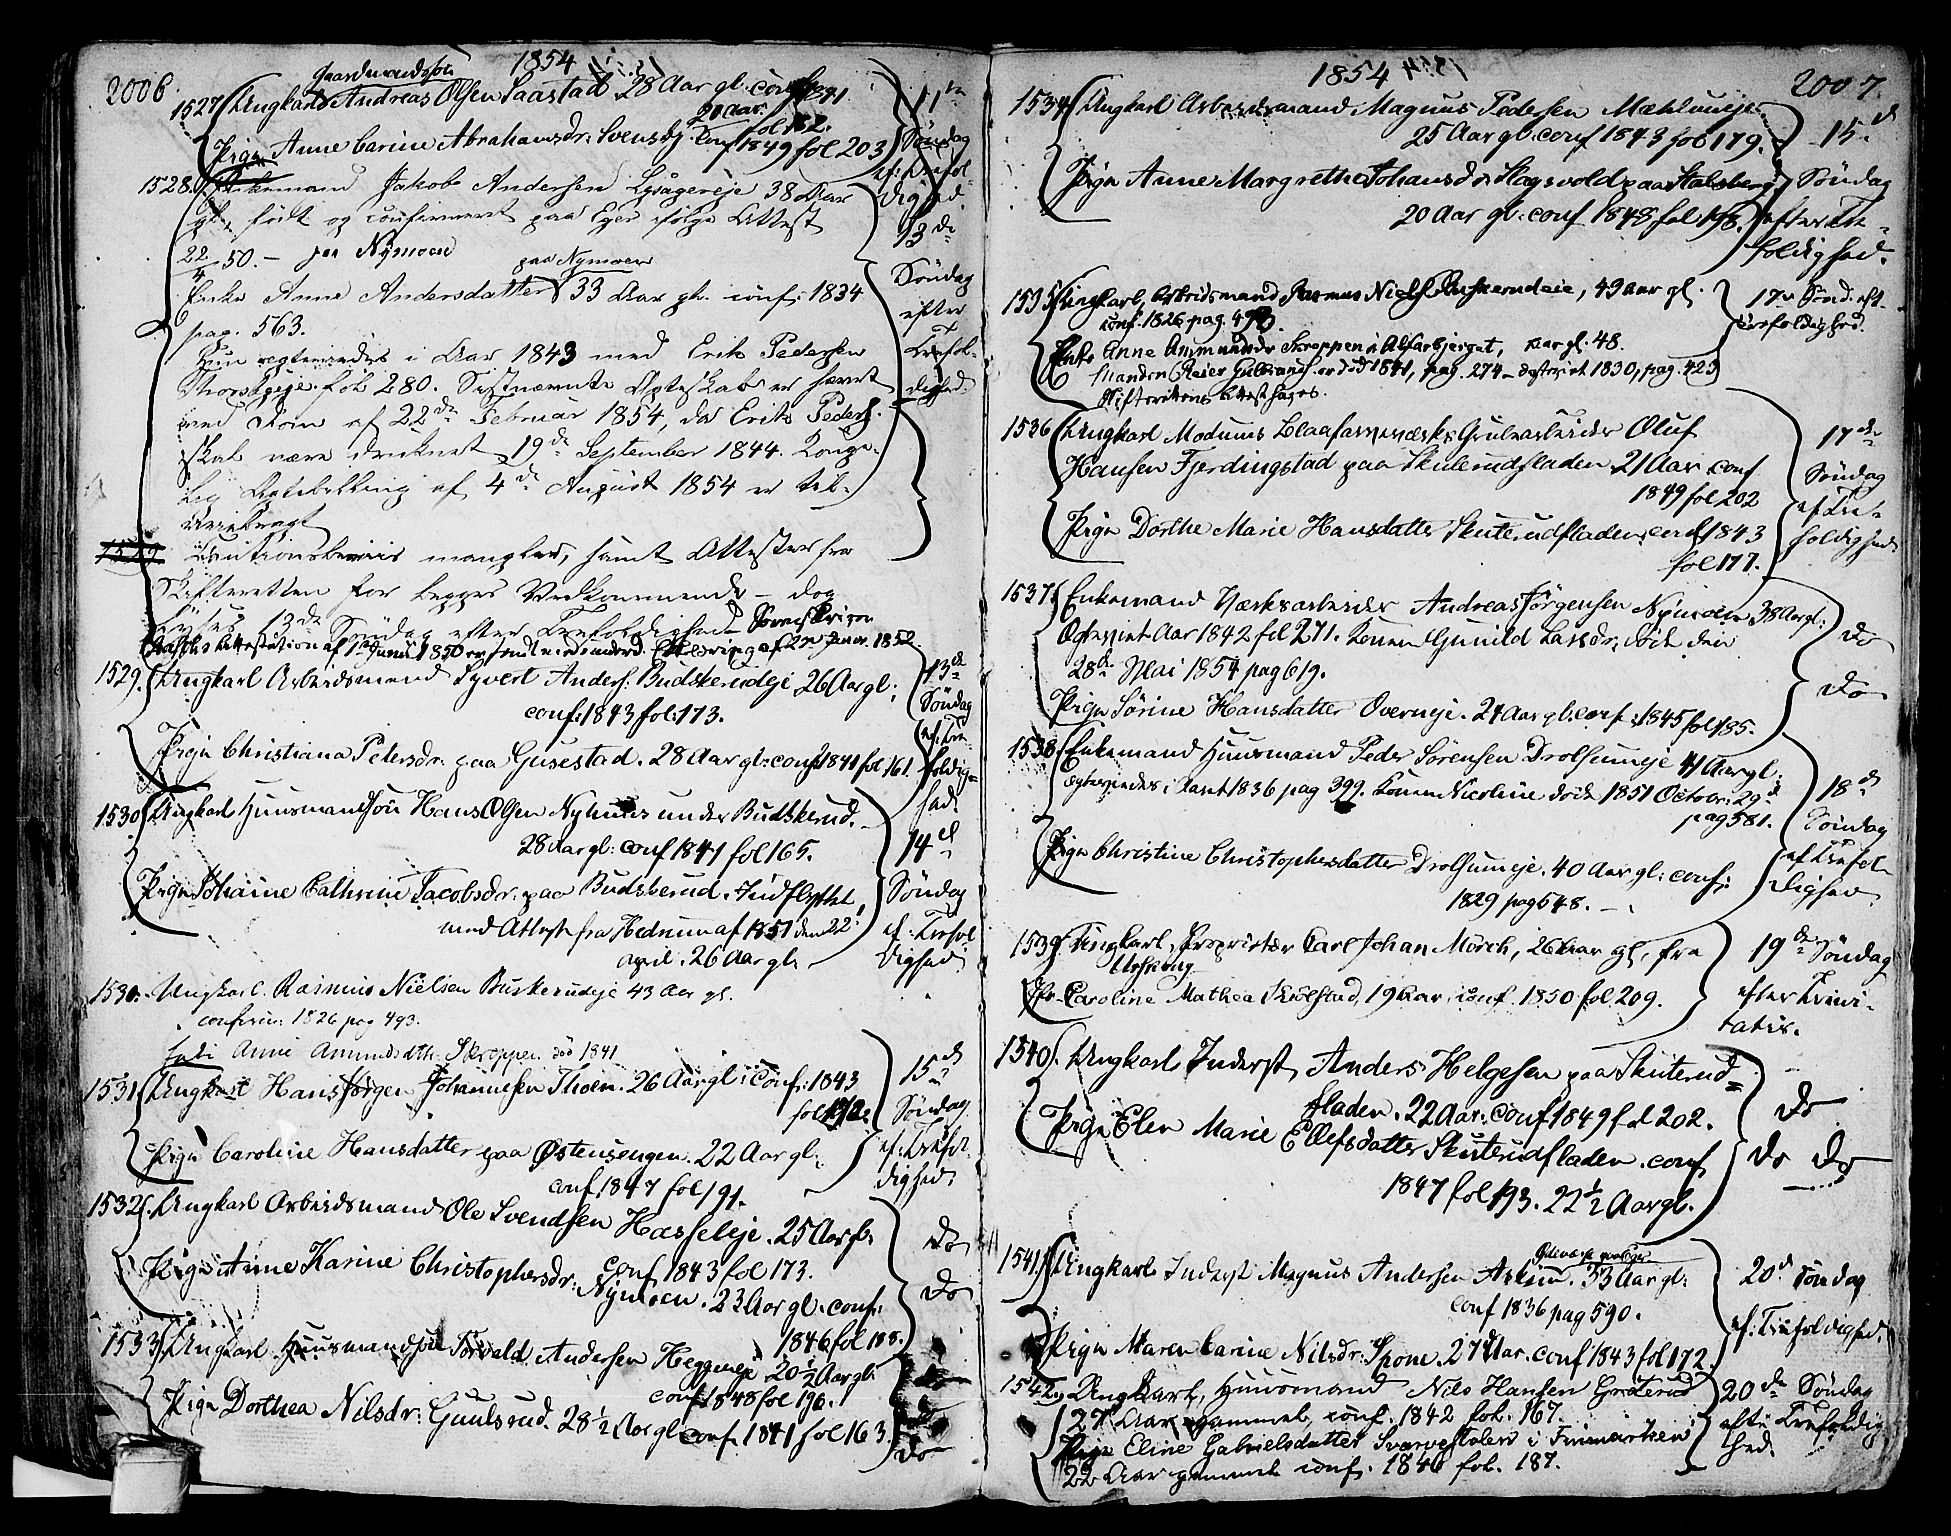 2006.
1854
Gaardmandssøn
1527 Ungkarl Andreas Olsen Saastad 28 Aar gl: conf
fol 162.
20 Aar.
Pige Anne Carine Abrahamsdr: Svensbj. conf 1849 fol 203
11te Søndag ef: Trefoldighed.
1528. Enkemand Jakob Andersen Lysagereje 38 Aar
gl., født og confirmeret paa Eger ifølge Attest
22/4 50. – paa Nymoen
paa Nymoen
Enke Anne Andersdatter 33 Aar gl. conf: 1834
pag. 563.
Hun egteviedes i Aar 1843 med Erik Pedersen
fol 280. Sidstnævnte Ægteskab er hævet
ved Dom af 22de Februar 1854, da Erik Peders.
skal være druknet 19de September 1844. Konge-
lig Bevilling af 4de August 1854 er
13de Søndag efter Trefoldighed.
1529
Cautionsbeviis mangler, samt Attester fra
Skifteretten for begges Vedkommende – dog
lyses 13de Søndag efter Trefoldighed
1529. Ungkarl Arbeidsmand Syvert Anders: Budskerudeje 26 Aar gl:
conf: 1843 fol: 173.
Pige Christiana Petersdr: paa Gusestad. 28 Aar gl: conf 1841 fol 161.
13de Søndag ef: Trefoldighed.
1530 Ungkarl Huusmandssøn Hans Olsen Nyhuus under Budskerud.
28 Aar gl: conf 1841 fol 165.
Pige Johanne Cathrine Jacobsdr: paa Budskerud. Indflyttet
med Attest fra Hedrum af 1851 den 22
april. 26 Aar gl.
14d Søndag ef: Trefoldighed
1530. Ungkarl. Rasmus Nielsen Buskerudeje 43 Aar gl.
confirm: 1826 pag 493.
Enke Anne Amundsdtr: Skroppen død 1841
1531 Ungkarl Hans Jørgen Johannesen Thoen. 26 Aar gl: conf: 1843
fol 172.
Pige Caroline Hansdatter paa Østensengen. 22 Aar gl:
conf 1847 fol 191.
15d Søndag ef: Trefoldighed
1532 Ungkarl Arbeidsmand Ole Svendsen Hasseleje. 25 Aar
conf 1843 fol 173.
Pige Anne Karine Christophersdr: Nymoen. 23 Aar gl. conf:
1846 fol 188.
Do
Do
1533 Ungkarl. Huusmandssøn Torvald Andersen Heggeneje 20½ Aar gl:
conf 1848 fol 196.
Pige Dorthea Nilsdr: Guulsrud. 28½ Aar gl: conf 1841 fol 163
Do
1854
2007.
1534 Ungkarl Arbeidsmand Magnus Pedersen Mæhlumeje
25 Aar gl: conf 1843 fol 179.
Pige Anne Margrethe Johansdr Slagsvold paa Stalsberg
20 Aar gl: conf 1848 fol 198.
15d Søndag efter Trefoldighed.
1535 Ungkarl, Arbeidsmand Rasmus Niels: Buskerudeie, 43 aar gl.
conf. 1826 pag. 493.
Enke Anne Ammundsdr Skroppen i Alfarbjerget, aar gl. 48.
Manden Reier Gulbrands. er død 1841, pag. 274 – egteviet 1830, pag. 423
Skifterettens Attest haves.
17de Sønd. eft. Trefoldighed.
1536 Ungkarl Modums Blaafarveværks Grubearbeider Oluf
Hansen Fjerdingstad paa Skuterudfladen. 21 Aar. conf
1849 fol 202
Pige Dorthe Marie Hansdatter Skuterudfladen. conf 1843
fol 177.
17de Søndag ef: Trefoldighed
1537. Enkemand Værksarbeider Andreas Jørgensen Nymoen 38 Aar gl:
Egteviet Aar 1842 fol 271. Konen Gunild Larsdr: døde den
28de Mai 1854 pag 619.
Pige Sørine Hansdatter Overneje. 24 Aar gl: conf: 1845 fol 185.
Do
Do
1538. Enkemand Huusmand Peder Sørensen Drolsumeje 41 Aar gl:
egteviedes i Aaret 1836 pag 399. Konen Nicoline døde 1851 Octobr: 29d
pag 581.
Pige Christine Christophersdatter Drolsumeje. 40 Aar gl: conf:
1829 pag 548. –
18d Søndag ef: Trefoldighed
1539. Ungkarl, Proprietær Carl Johan Mörch, 26 Aar gl, fra
Jfr. Caroline Mathea Skiølstad, 19 Aar, conf. 1850 fol. 209.
19de Søndag efter Trinitatis.
1540. Ungkarl Inderst Anders Helgesen paa Skuterud=
fladen. 22 Aar. conf 1849 fol 202.
Pige Elen Marie Ellefsdatter Skuterudfladen. conf
1847 fol 193. 22½ Aar gl.
Do
Do Do
1541 Ungkarl Inderst Magnus Andersen Askim. 33 Aar gl:
conf 1836 pag 590.
Pige Maren Carine Nilsdr: Spone. 27 Aar. conf 1843 fol 172.
20d Søndag ef: Trefoldighed.
1542. Ungkarl, Huusmand Nils Hansen Grøterud
27 Aar gammel, conf. 1842 fol. 167.
Pige Eline Gabrielsdatter Svarvestolen i Finmarken
22 Aar gammel conf. 1846 fol. 187.
20de Søndag efter Trefoldighed.